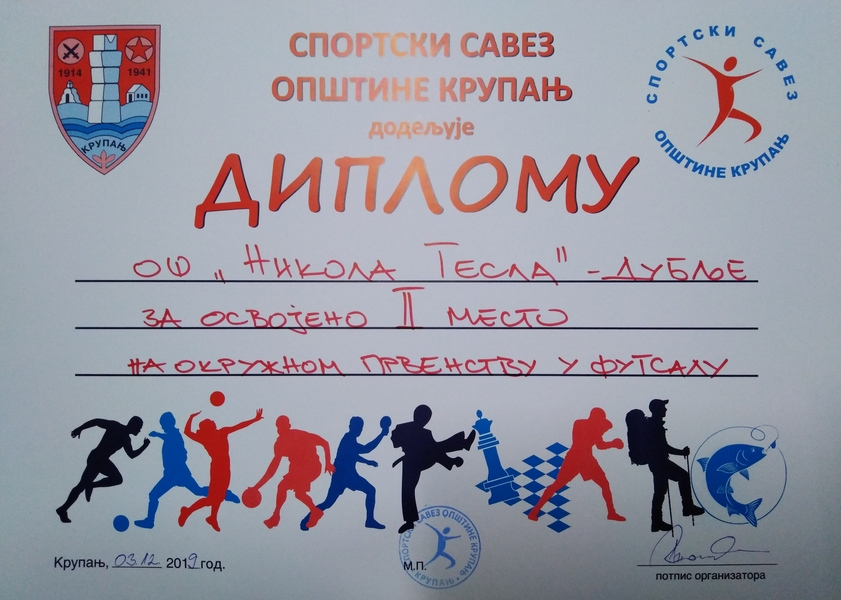 1914 1941
КРУПАЊ
СПОРТСКИ САВЕЗ
ОПШТИНЕ КРУПАЊ
додељује
ДИПЛОМУ
СПОРТСКИ САВЕЗ
ОПШТИНЕ КРУПАЊ
ОШ „НИКОЛА ТЕСЛА" - ДУБЉЕ
ЗА ОСВОЈЕНО II МЕСТО
НА ОКРУЖНОМ ПРВЕНСТВУ У ФУТСАЛУ
Крупањ, 03.12 2019 год.
М.П.
САВЕЗ ОПШТИНЕ КРУПАЊ
КРУПАЊ
потпис организатора